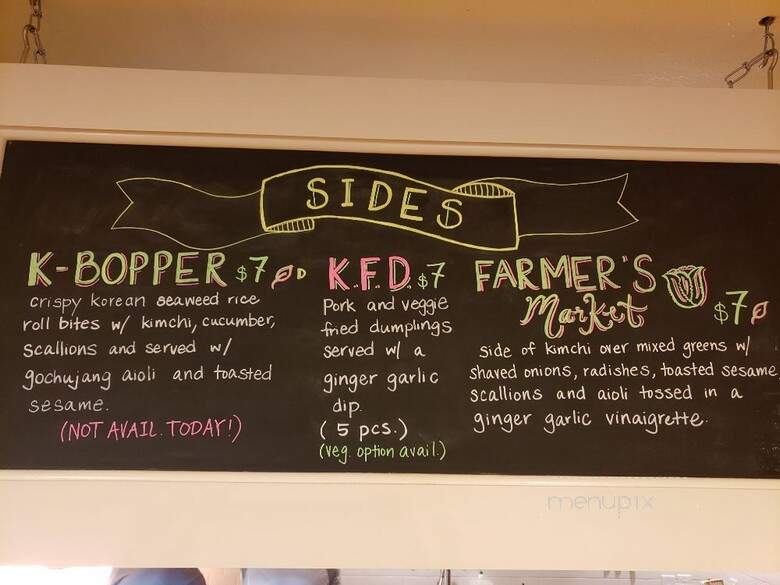 SIDES
K-BOPPER $7 D
crispy korean seaweed rice
roll bites w/ kimchi, cucumber,
scallions and served w/
gochujang aioli and toasted
sesame.
(NOT AVAIL. TODAY!)
K.F.D. $7
Pork and veggie
fried dumplings
served w/ a
ginger garlic
dip.
(5 pcs.)
(veg. option avail.)
FARMER'S
Market $7
side of kimchi over mixed greens w/
shaved onions, radishes, toasted sesame,
scallions and aioli tossed in a
ginger garlic vinaigrette.
menupix